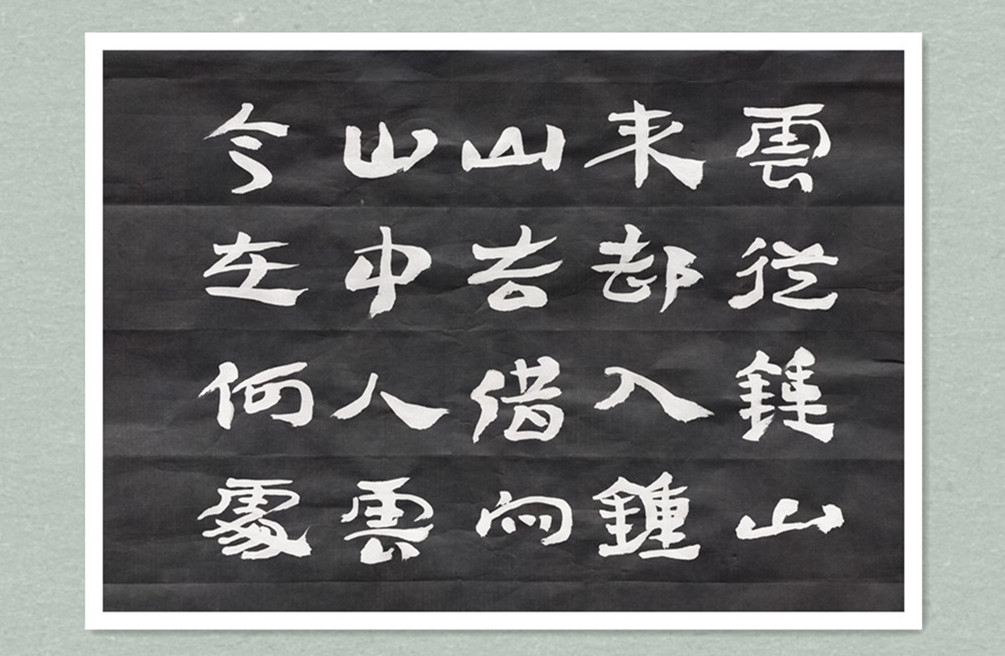 雲從鍾山
来却入鍾
山去借向
山中人雲
今在何處